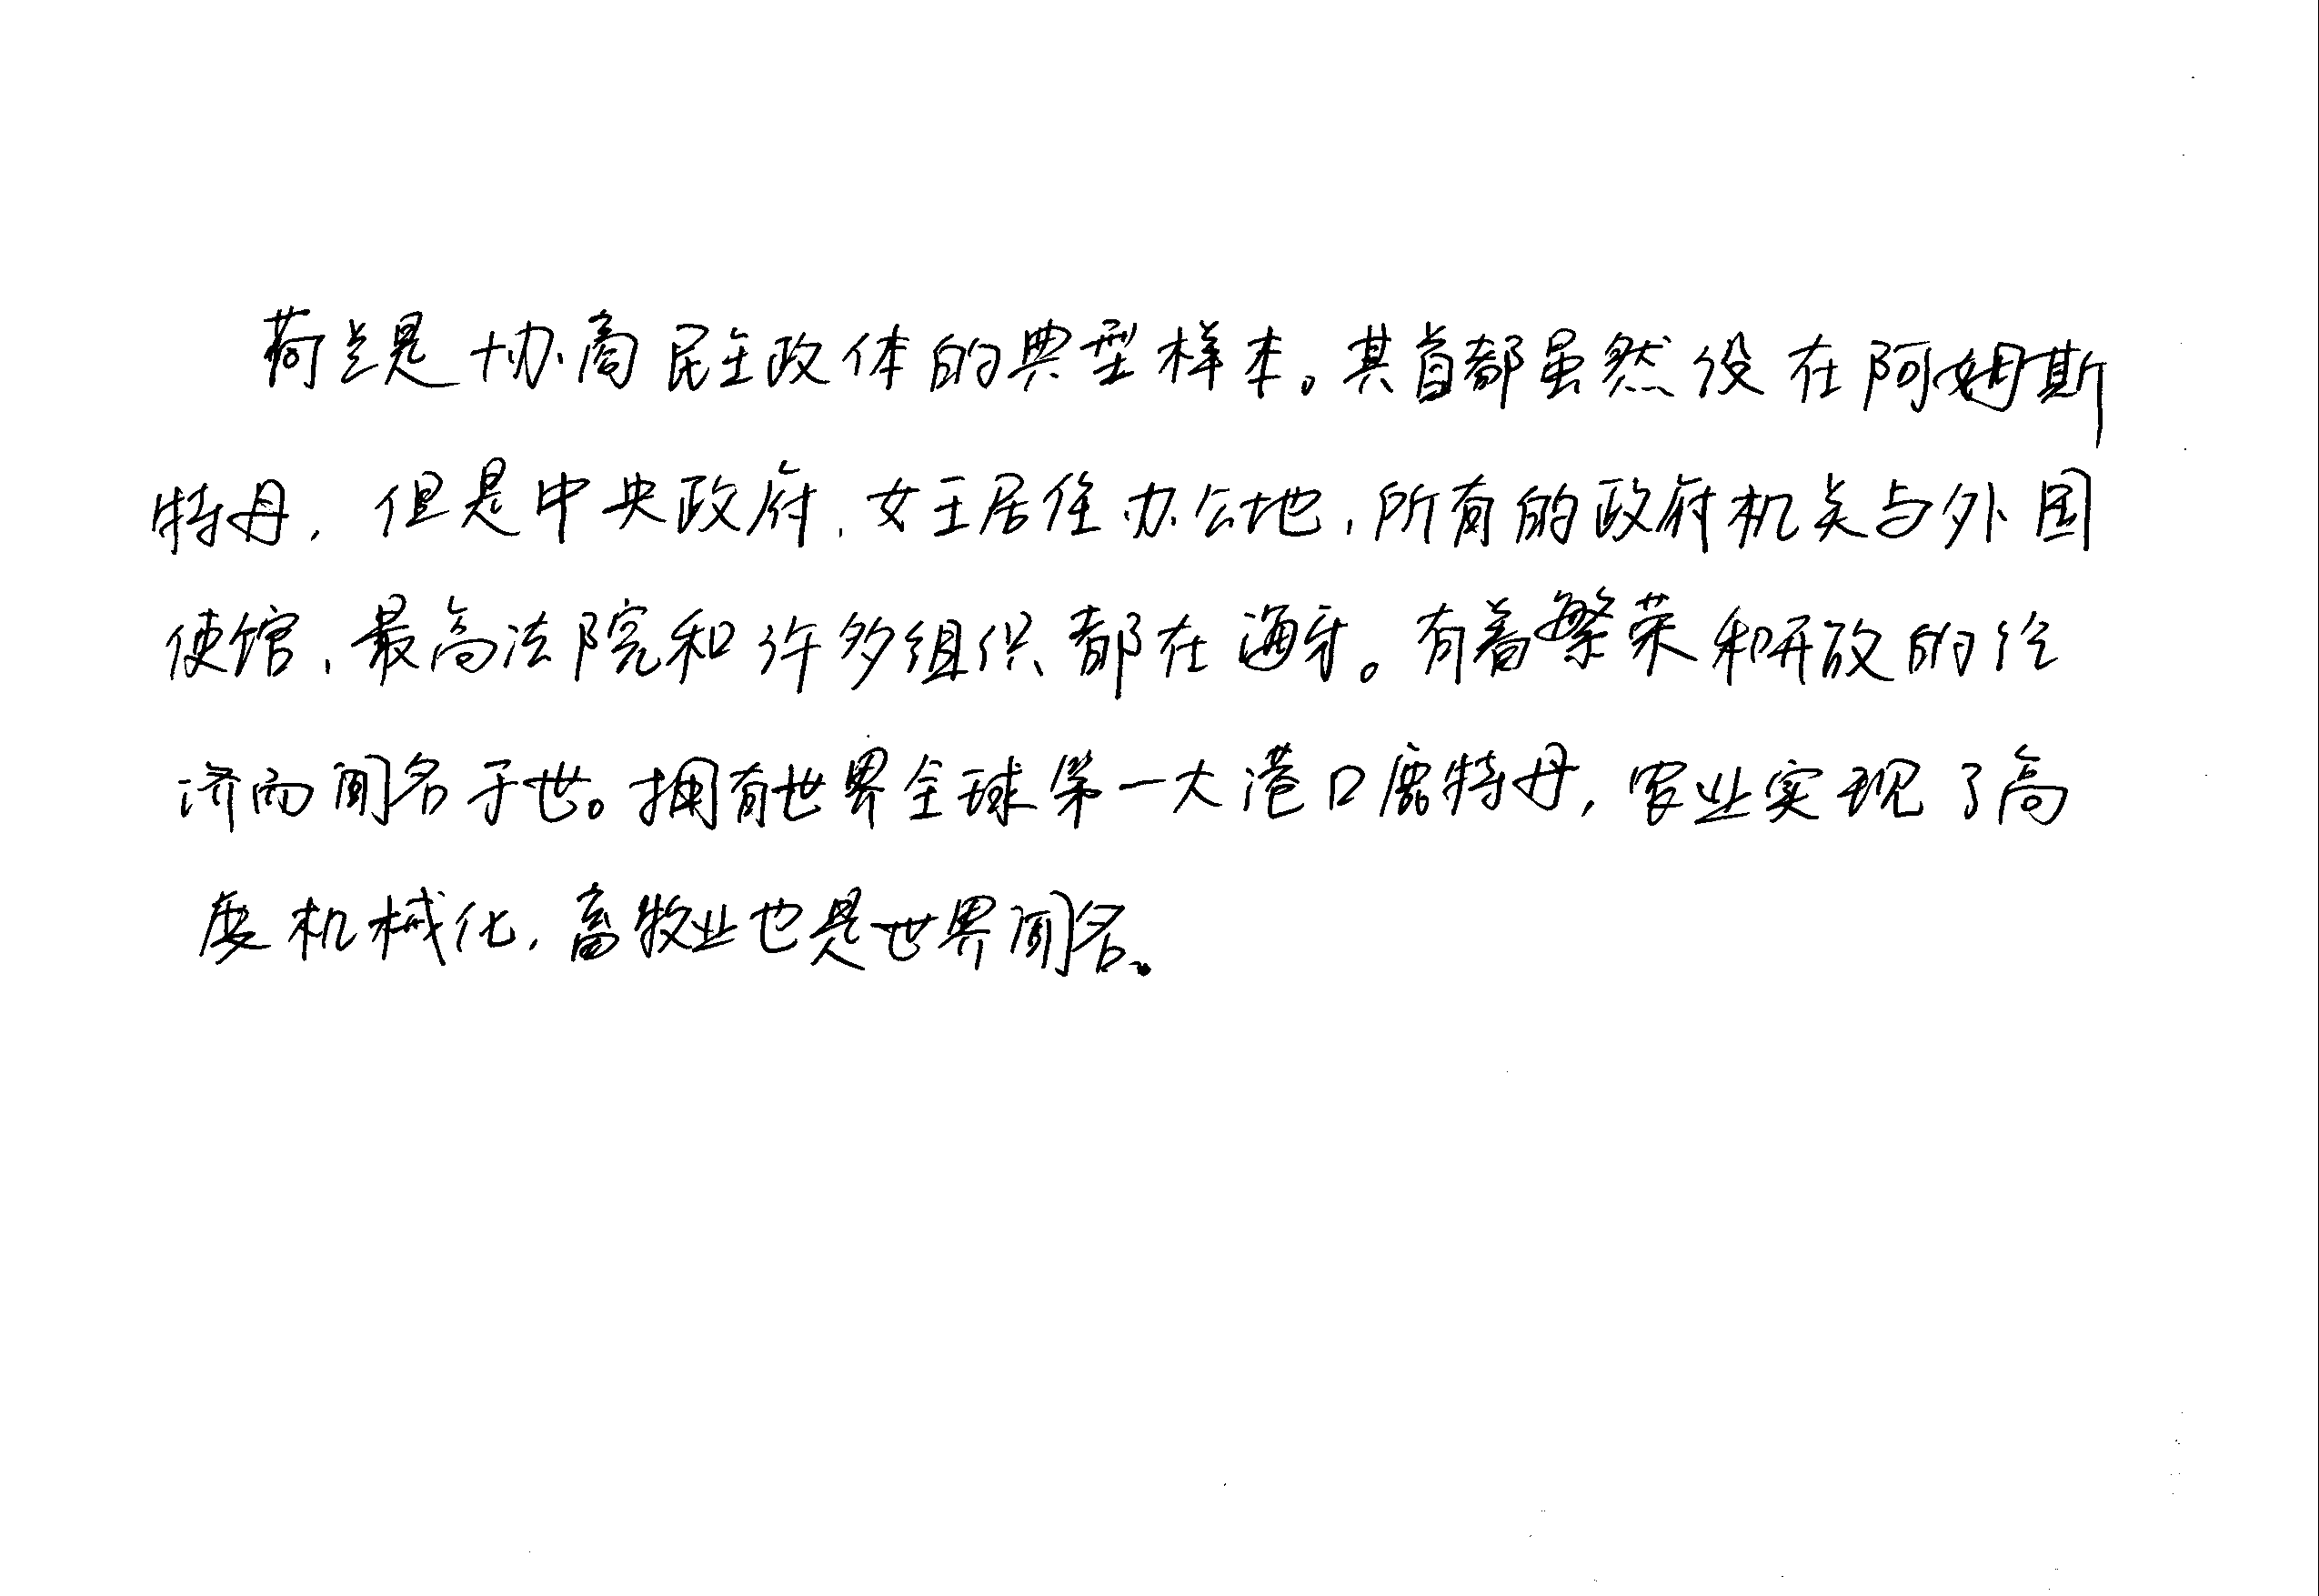 荷兰是协商民主政体的典型样本。其首都虽然设在阿姆斯
特丹，但是中央政府、女王居住办公地，所有的政府机关与外国
使馆、最高法院和许多组织都在海牙。有着繁荣和开放的经
济而闻名于世。拥有世界全球第一大港口鹿特丹，农业实现了高
度机械化，畜牧业也是世界闻名。